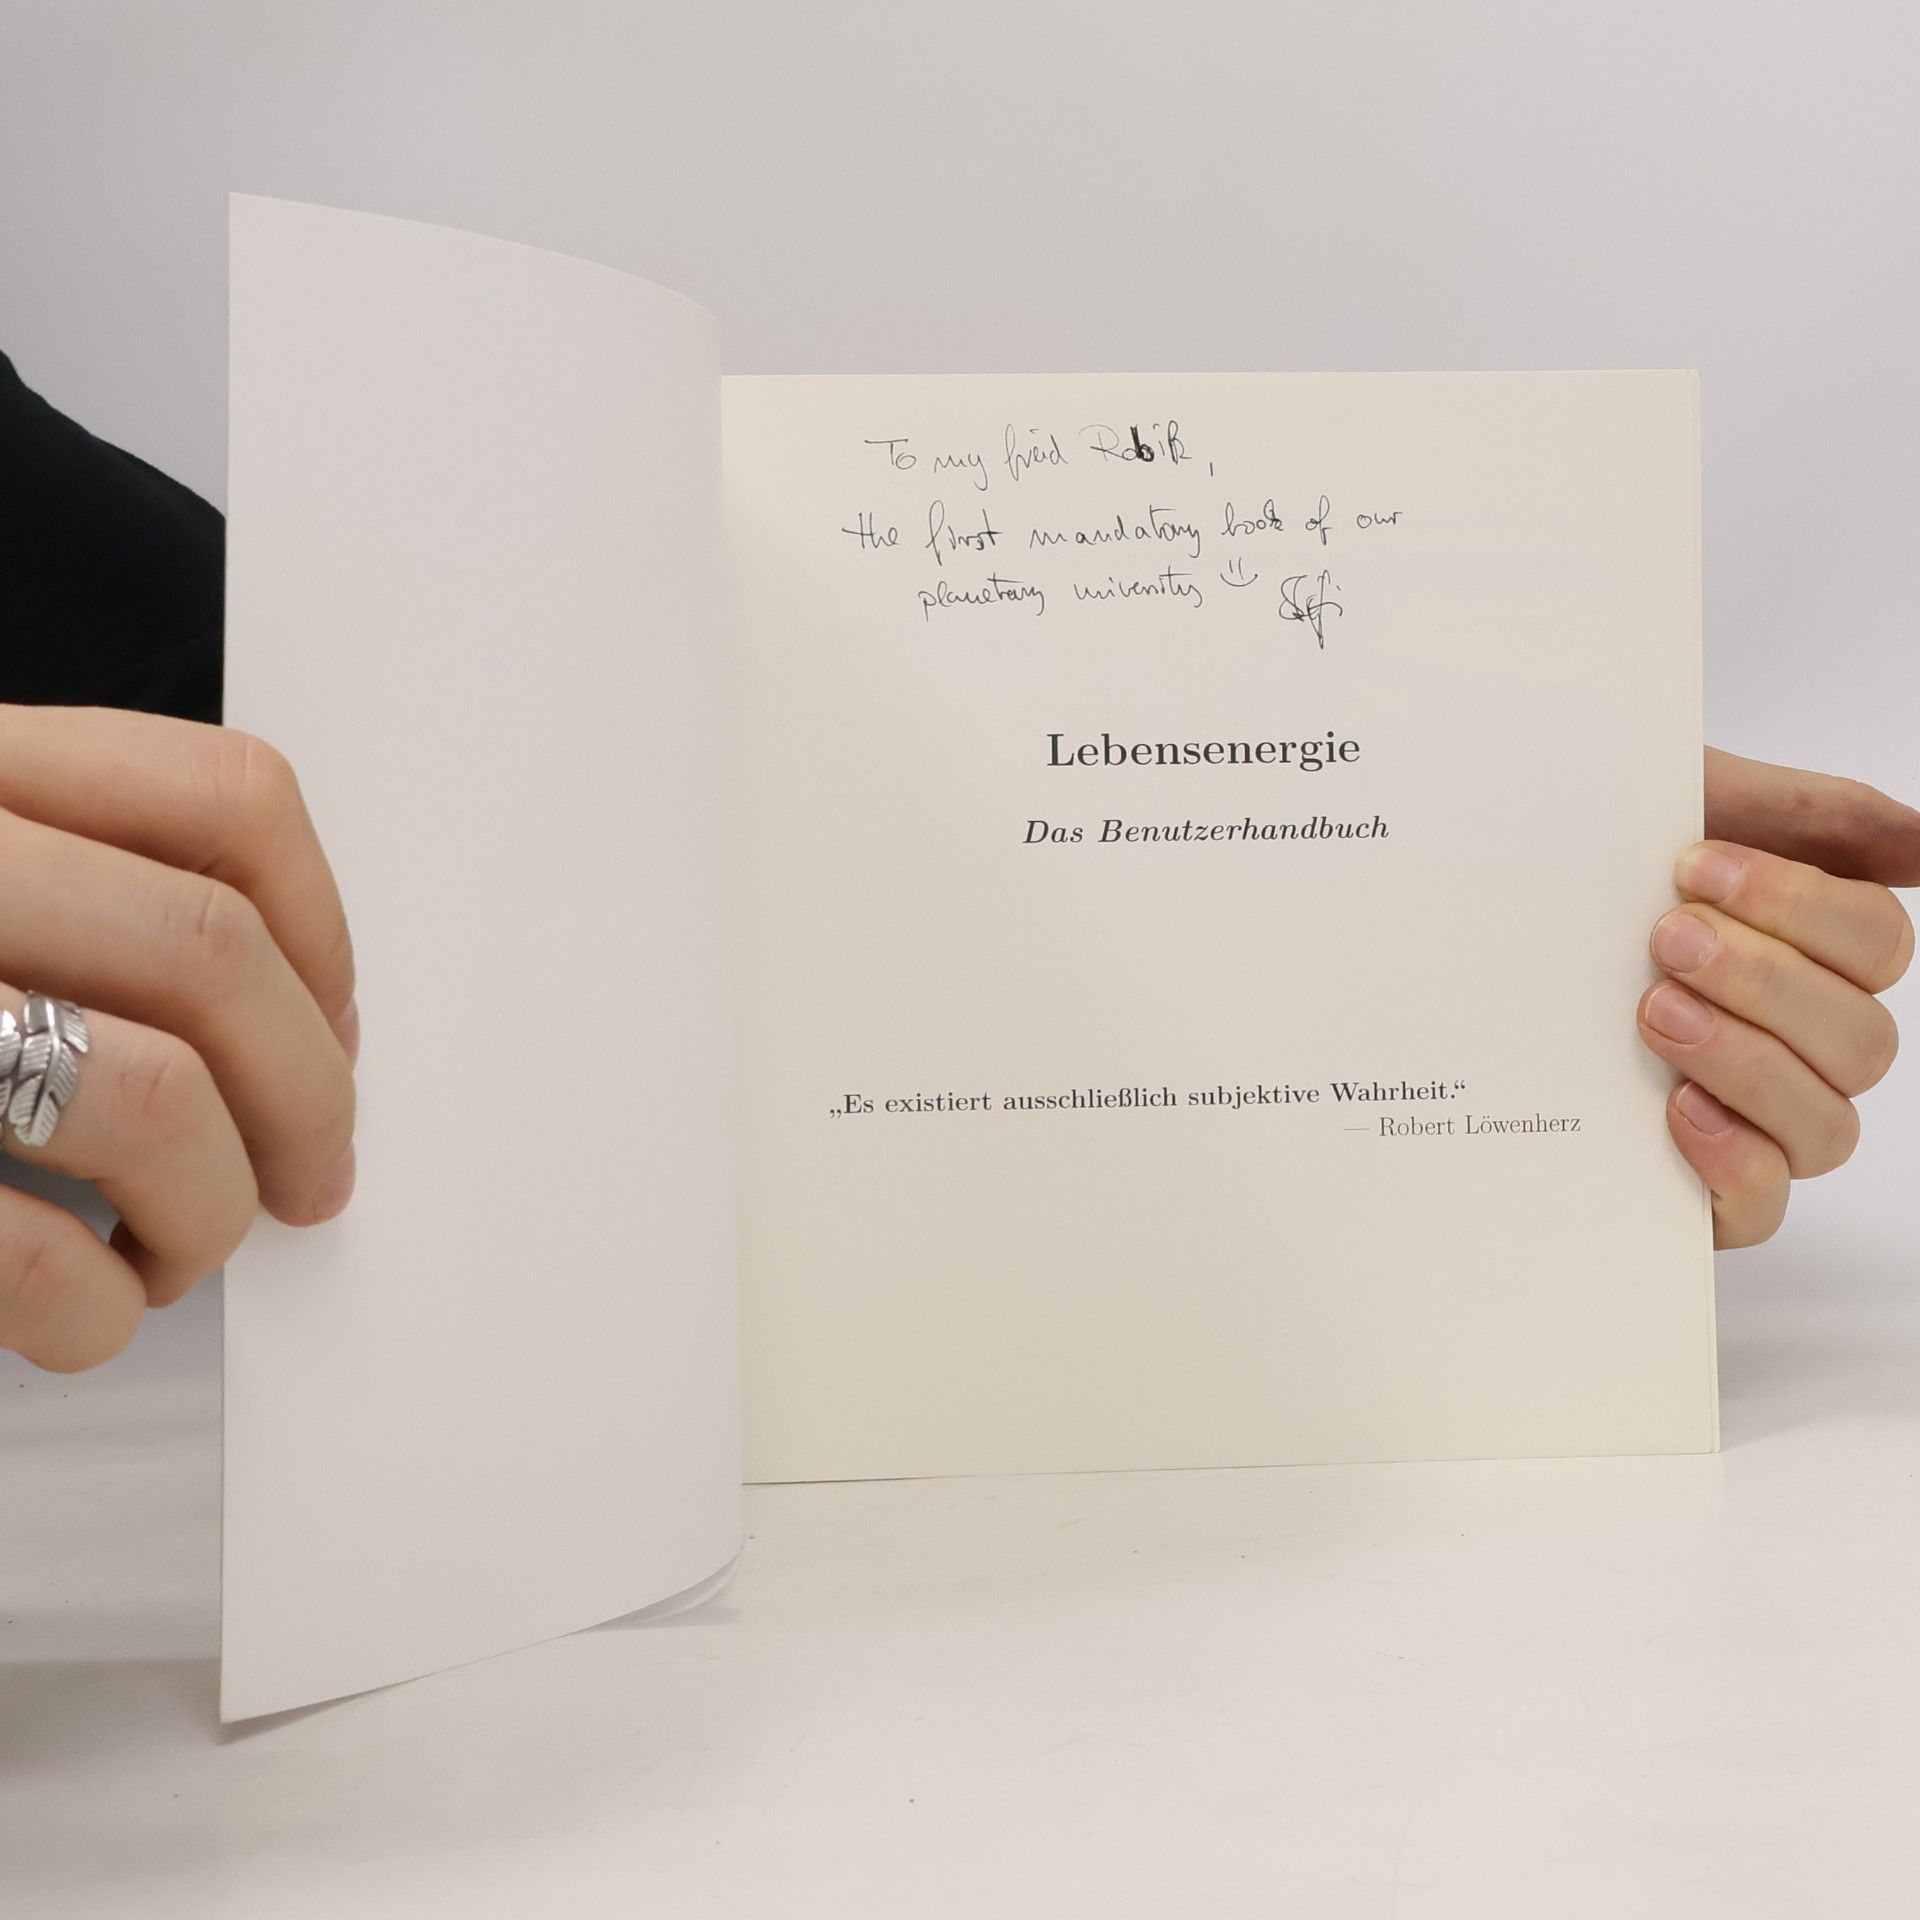 To my freid
the first mandatory book of our
planetary university
Lebensenergie
Das Benutzerhandbuch
„Es existiert ausschließlich subjektive Wahrheit.“
— Robert Löwenherz